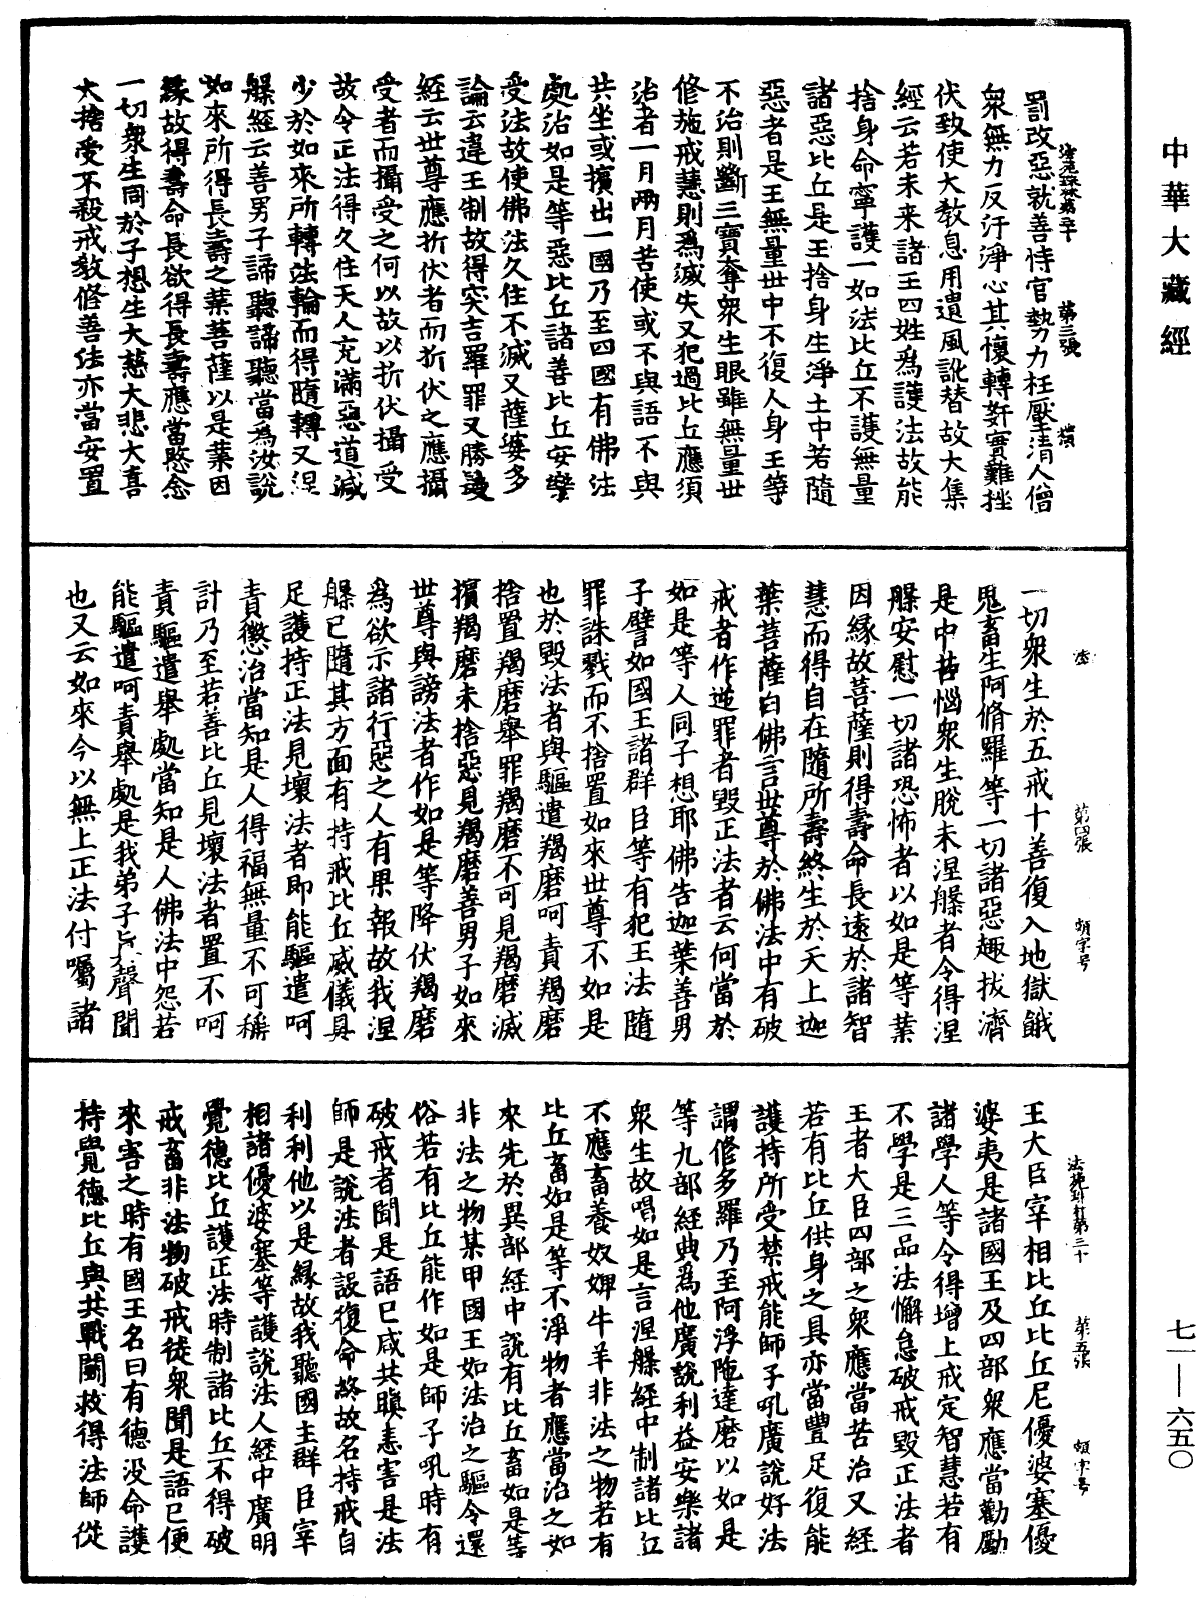 中華大藏經
七一—六五〇
法苑珠林卷三十 第三張 煩
罰改惡就善恃官勢力枉壓清人僧
衆無力反汙淨心其懷轉姧實難挫
伏致使大教息用遺風訛替故大集
經云若未来諸王四姓爲護法故能
捨身命寧護一如法比丘不護無量
諸惡比丘是王捨身生淨土中若隨
惡者是王無量世中不復人身王等
不治則斷三寶奪衆生眼雖無量世
修施戒慧則爲滅失又犯過比丘應須
治者一月兩月苦使或不與語不與
共坐或擯出一國乃至四國有佛法
處治如是等惡比丘諸善比丘安樂
受法故使佛法久住不滅又薩婆多
論云違王制故得突吉羅罪又勝鬘
經云世尊應折伏者而折伏之應攝
受者而攝受之何以故以折伏攝受
故令正法得久住天人充滿惡道減
少於如來所轉法輪而得隨轉又涅
槃經云善男子諦聽諦聽當爲汝說
如來所得長壽之業菩薩以是業因
緣故得壽命長欲得長壽應當愍念
一切衆生同於子想生大慈大悲大喜
大捨受不殺戒教修善法亦當安置
第四張 煩字号
一切衆生於五戒十善復入地獄餓
鬼畜生阿脩羅等一切諸惡趣拔濟
是中苦惱衆生脫未涅槃者令得涅
槃安慰一切諸恐怖者以如是等業
因緣故菩薩則得壽命長遠於諸智
慧而得自在隨所壽終生於天上迦
葉菩薩白佛言世尊於佛法中有破
戒者作逆罪者毀正法者云何當於
如是等人同子想耶佛告迦葉善男
子譬如國王諸群臣等有犯王法隨
罪誅戮而不捨置如來世尊不如是
也於毀法者與驅遣羯磨呵責羯磨
捨置羯磨舉罪羯磨不可見羯磨滅
擯羯磨未捨惡見羯磨善男子如來
世尊與謗法者作如是等降伏羯磨
爲欲示諸行惡之人有果報故我涅
槃已隨其方面有持戒比丘威儀具
足護持正法見壞法者即能驅遣呵
責懲治當知是人得福無量不可稱
計乃至若善比丘見壞法者置不呵
責驅遣舉處當知是人佛法中怨若
能驅遣呵責舉處是我弟子真聲聞
也又云如來今以無上正法付囑諸
法苑珠林第三十 第五張 煩字号
王大臣宰相比丘比丘尼優婆塞優
婆夷是諸國王及四部衆應當勸勵
諸學人等令得增上戒定智慧若有
不學是三品法懈怠破戒毀正法者
王者大臣四部之衆應當苦治又經
若有比丘供身之具亦當豐足復能
護持所受禁戒能師子吼廣說好法
謂修多羅乃至阿浮陁達磨以如是
等九部經典爲他廣說利益安樂諸
衆生故唱如是言涅槃經中制諸比丘
不應畜養奴婢牛羊非法之物若有
比丘畜如是等不淨物者應當治之如
來先於異部經中說有比丘畜如是等
非法之物某甲國王如法治之驅令還
俗若有比丘能作如是師子吼時有
破戒者聞是語已咸共瞋恚害是法
師是說法者設復命終故名持戒自
利利他以是緣故我聽國主群臣宰
相諸優婆塞等護說法人經中廣明
覺德比丘護正法時制諸比丘不得破
戒畜非法物破戒徒衆聞是語已便
來害之時有國王名曰有德没命護
持覺德比丘與共戰鬪救得法師從